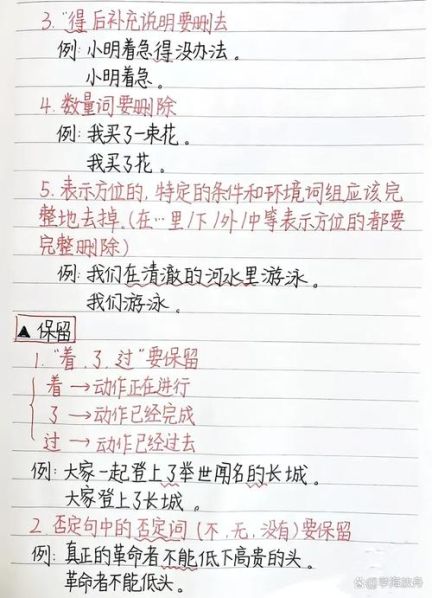 3."得后补充说明要删去
例:小明着急得没办法。
小明着急。
4.数量词要删除
例:我买了一束花。
我买了花。
5.表示方位的,特定的条件和环境词组应该完
整地去掉.(在…里/下/外/中等表示方位的都要
完整删除)
例:我们在清澈的河水里游泳。
我们游泳。
▲保留
1."着、了、过"要保留
着→动作正在进行
了→动作已经完成
过→动作已经过去
例:大家一起登上了举世闻名的长城。
大家登上了长城。
2.否定句中的否定词(不、无、没有)要保留
例:真正的革命者不能低下高贵的头。
革命者不能低头。